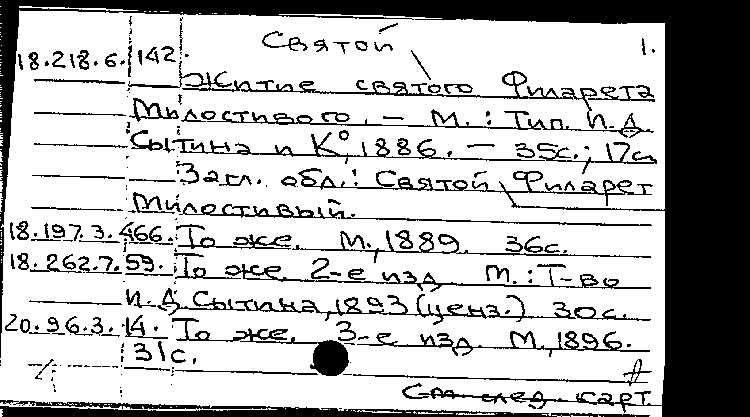 Святой 1.
18.218.6. 142.
Житие святого Филарета
Милостивого. – М.: Тип. И.Д.
Сытина и К°, 1886. – 35с.; 17см
Загл. обл.: Святой Филарет
Милостивый.
18.197.3.466. То же. М., 1889. 36с.
18.262.7.59. То же. 2-е изд. М.: Т-во
И.Д. Сытина, 1893 (ценз.) 30с.
20.96.3.14. То же. 3-е изд. М., 1896.
31с.
См след карт.